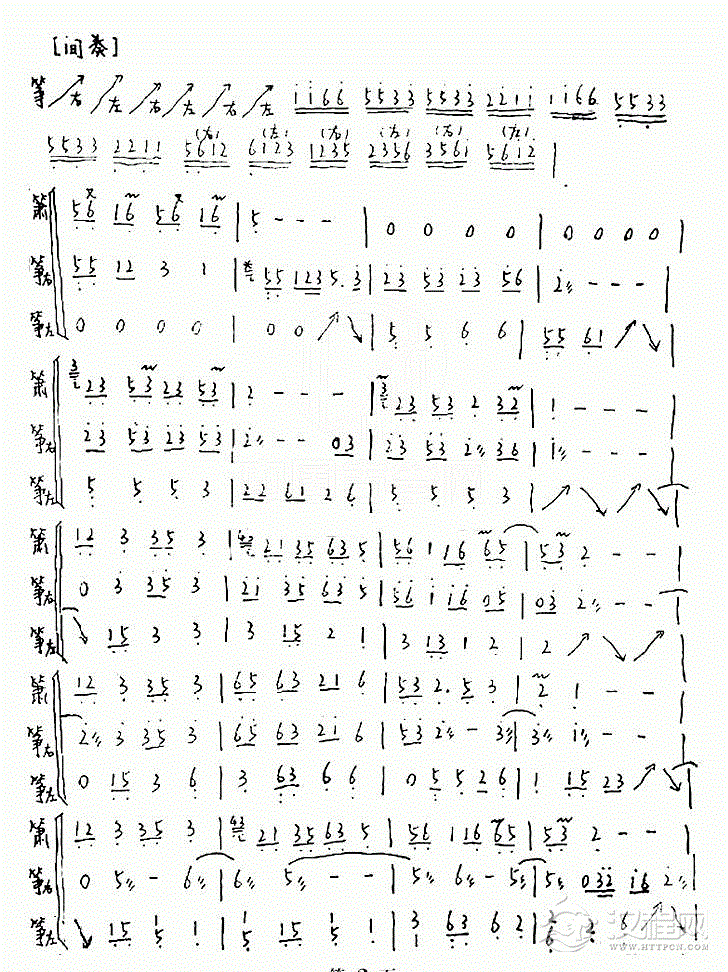 [间奏]
筝 右 左 右 左 右 左 i i 6 6 5 5 3 3 5 5 3 3 2 2 1 1 i i 6 6 5 5 3 3
(右) (左) (右) (右) (左)
5 5 3 3 2 2 1 1 5 6 1 2 6 1 2 3 1 2 3 5 2 3 5 6 3 5 6 i 5 6 i 2 |
箫 5 6 1 6 5 6 1 6 | 5 - - - | 0 0 0 0 | 0 0 0 0 |
筝右 5 5 1 2 3 1 | 5 5 1 2 3 5 . 3 | 2 3 5 3 2 3 5 6 | 2 - - - |
筝左 0 0 0 0 | 0 0 | 5 5 6 6 | 5 5 6 1 |
箫 2 3 5 3 2 3 5 3 | 2 - - - | 2 3 5 3 2 3 2 | 1 - - - |
筝右 2 3 5 3 2 3 5 3 | 2 - - 0 3 | 2 3 5 3 2 3 6 | i - - - |
筝左 5 5 5 3 | 2 2 6 1 2 6 | 5 5 5 3 |
箫 1 2 3 3 5 3 | 2 1 3 5 6 3 5 | 5 6 1 1 6 6 5 | 5 3 2 - - |
筝右 0 3 3 5 3 | 2 i 3 5 6 3 5 | 5 6 i i 6 0 5 | 0 3 2 - - |
筝左 1 5 3 3 | 3 1 5 2 1 | 3 1 3 1 2 | 2 |
箫 1 2 3 3 5 3 | 6 5 6 3 2 1 6 | 5 3 2 . 5 3 | 2 1 - - |
筝右 2 3 3 5 3 | 6 5 6 3 2 i 6 | 5 3 2 - 3 | 3 i - - |
筝左 0 1 5 3 6 | 3 6 3 6 6 | 0 5 5 2 6 | 1 1 5 2 3 |
箫 1 2 3 3 5 3 | 2 1 3 5 6 3 5 | 5 6 1 1 6 6 5 | 5 3 2 - - |
筝右 0 5 - 6 | 6 5 - - | 5 6 - 5 | 5 0 3 2 i 6 2 |
筝左 1 5 1 | 1 5 1 | 6 3 6 2 | 2 6
汉程网
WWW.HTTPCN.COM